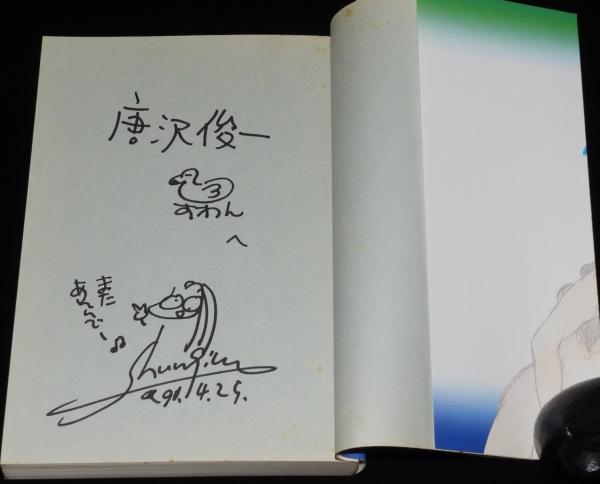 唐沢俊一
すわん
へ
また
あそんでー♪
Shungiku
'91.4.25.